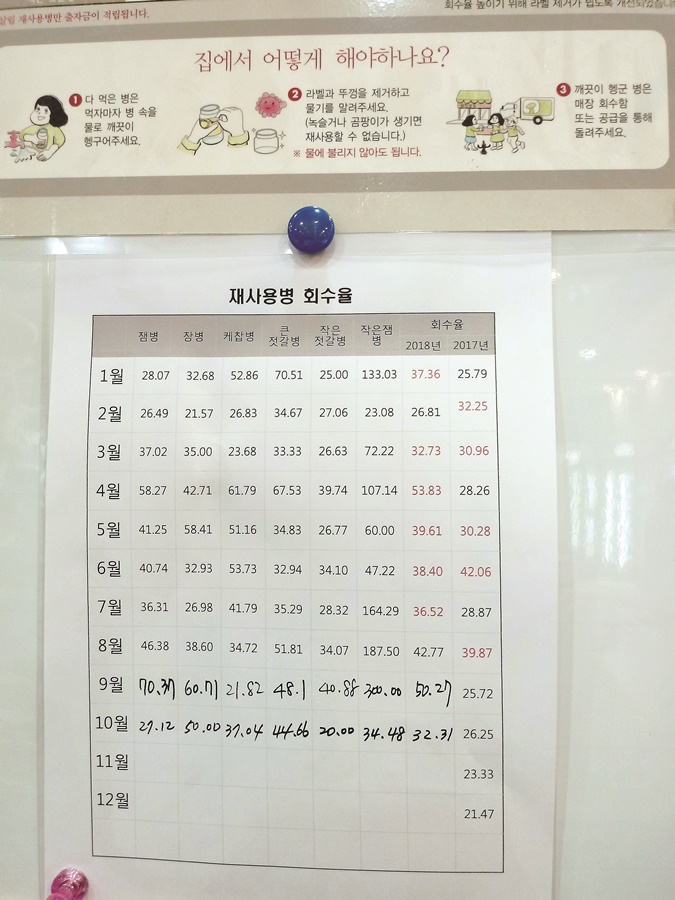 살림 재사용병만 출자금이 적립됩니다.
회수율 높이기 위해 라벨 제거가 쉽도록 개선되었습니다
집에서 어떻게 해야하나요?
1 다 먹은 병은
먹자마자 병 속을
물로 깨끗이
헹구어주세요.
2 라벨과 뚜껑을 제거하고
물기를 말려주세요.
(녹슬거나 곰팡이가 생기면
재사용할 수 없습니다.)
※ 물에 불리지 않아도 됩니다.
3 깨끗이 헹군 병은
매장 회수함
또는 공급을 통해
돌려주세요.
재사용병 회수율
잼병 장병 케찹병 큰 젓갈병 작은 젓갈병 작은잼병 회수율
2018년 2017년
1월 28.07 32.68 52.86 70.51 25.00 133.03 37.36 25.79
2월 26.49 21.57 26.83 34.67 27.06 23.08 26.81 32.25
3월 37.02 35.00 23.68 33.33 26.63 72.22 32.73 30.96
4월 58.27 42.71 61.79 67.53 39.74 107.14 53.83 28.26
5월 41.25 58.41 51.16 34.83 26.77 60.00 39.61 30.28
6월 40.74 32.93 53.73 32.94 34.10 47.22 38.40 42.06
7월 36.31 26.98 41.79 35.29 28.32 164.29 36.52 28.87
8월 46.38 38.60 34.72 51.81 34.07 187.50 42.77 39.87
9월 70.37 60.71 21.82 48.1 40.88 300.00 50.27 25.72
10월 27.12 50.00 37.04 44.66 20.00 34.48 32.31 26.25
11월 23.33
12월 21.47